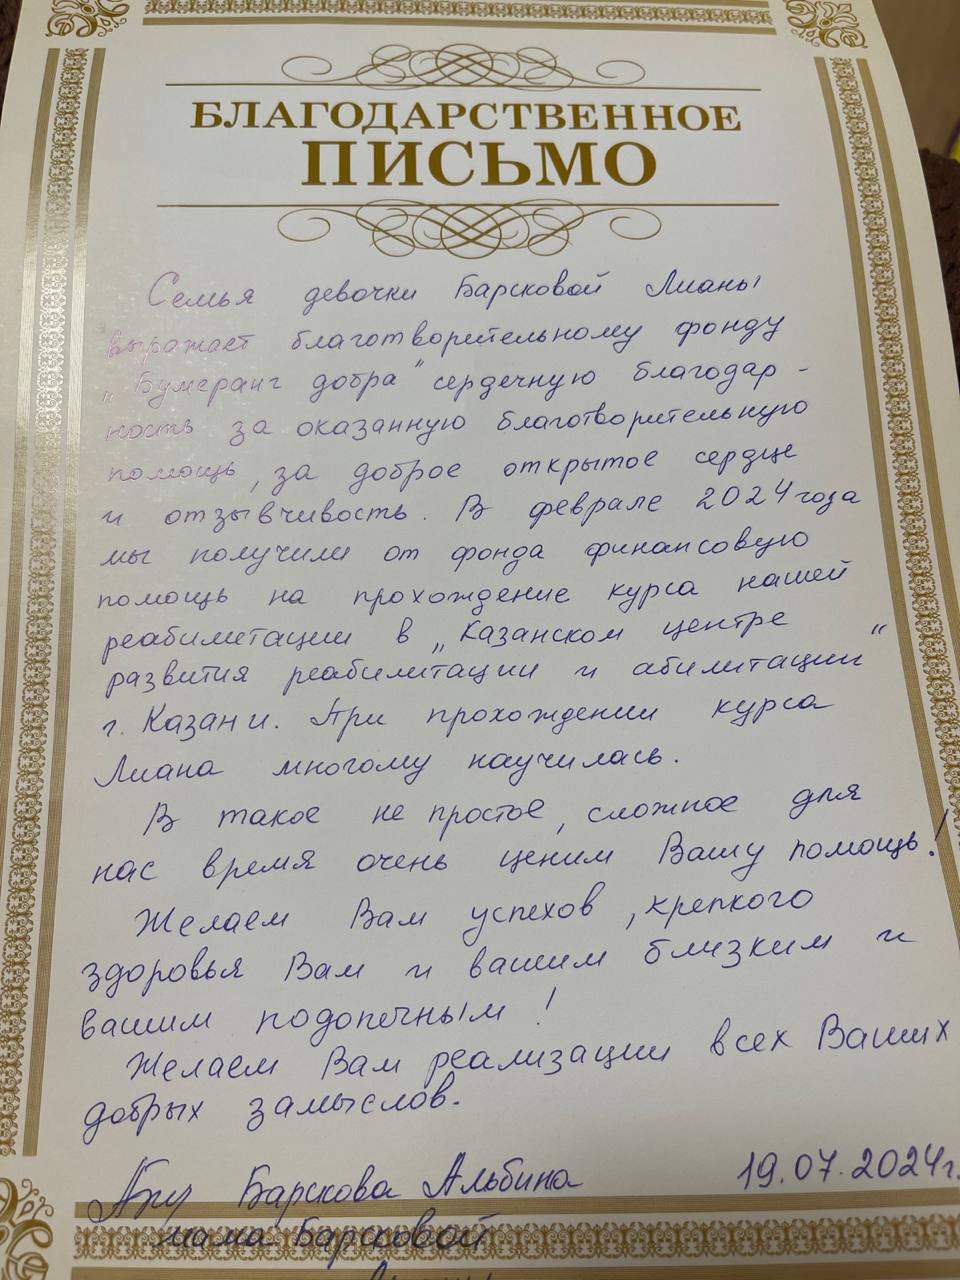 БЛАГОДАРСТВЕННОЕ
ПИСЬМО
Семья девочки Барсковой Лианы
выражает благотворительному фонду
„Бумеранг добра" сердечную благодар-
ность за оказанную благотворительную
помощь, за доброе открытое сердце
и отзывчивость. В феврале 2024 года
мы получили от фонда финансовую
помощь на прохождение курса нашей
реабилитации в „Казанском центре
развития реабилитации и абилитации"
г. Казани. При прохождении курса
Лиана многому научилась.
В такое не простое, сложное для
нас время очень ценим Вашу помощь!
Желаем Вам успехов, крепкого
здоровья Вам и вашим близким и
вашим подопечным!
Желаем Вам реализации всех Ваших
добрых замыслов.
Барскова Альбина 19.07.2024г.
мама Барсковой